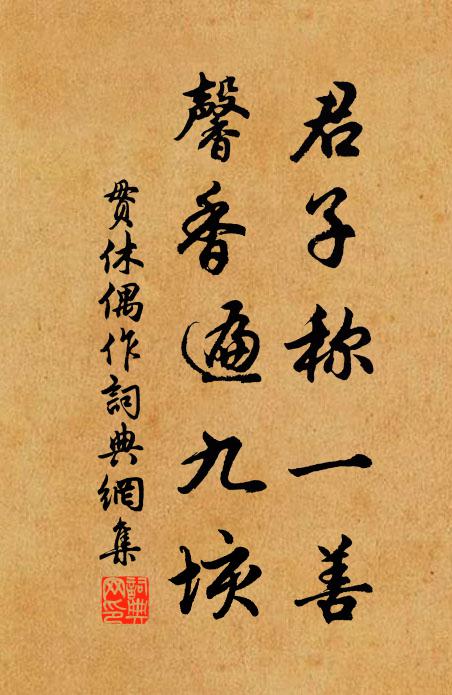 君子称一善
馨香遍九垓
贯休偶作詞典網集
詞典网印